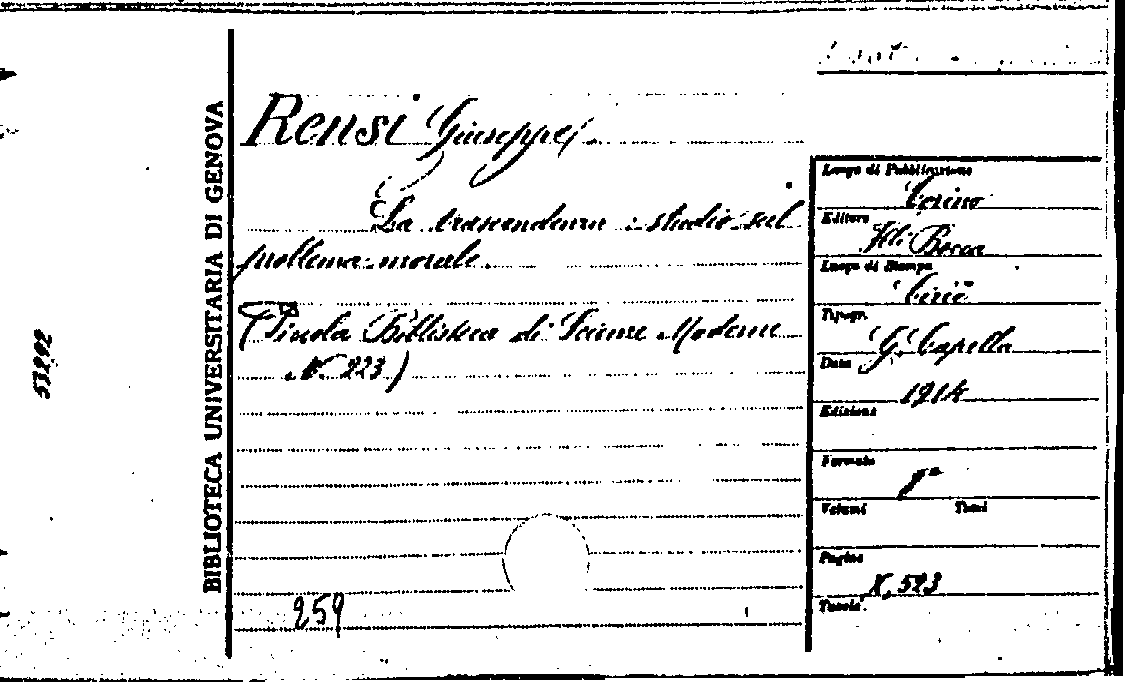 BIBLIOTECA UNIVERSITARIA DI GENOVA
Rensi Giuseppe
La trascendenza : studio sul
problema morale.
(Piccola Biblioteca di Scienze Moderne
N. 223)
259
Luogo di Pubblicazione
Torino
Editore
Flli Bocca
Luogo di Stampa
Ciriè
Tipogr.
G. Capella
Data
1914
Edizione
Formato
8°
Volumi Tomi
Pagine
X, 523
Tavole